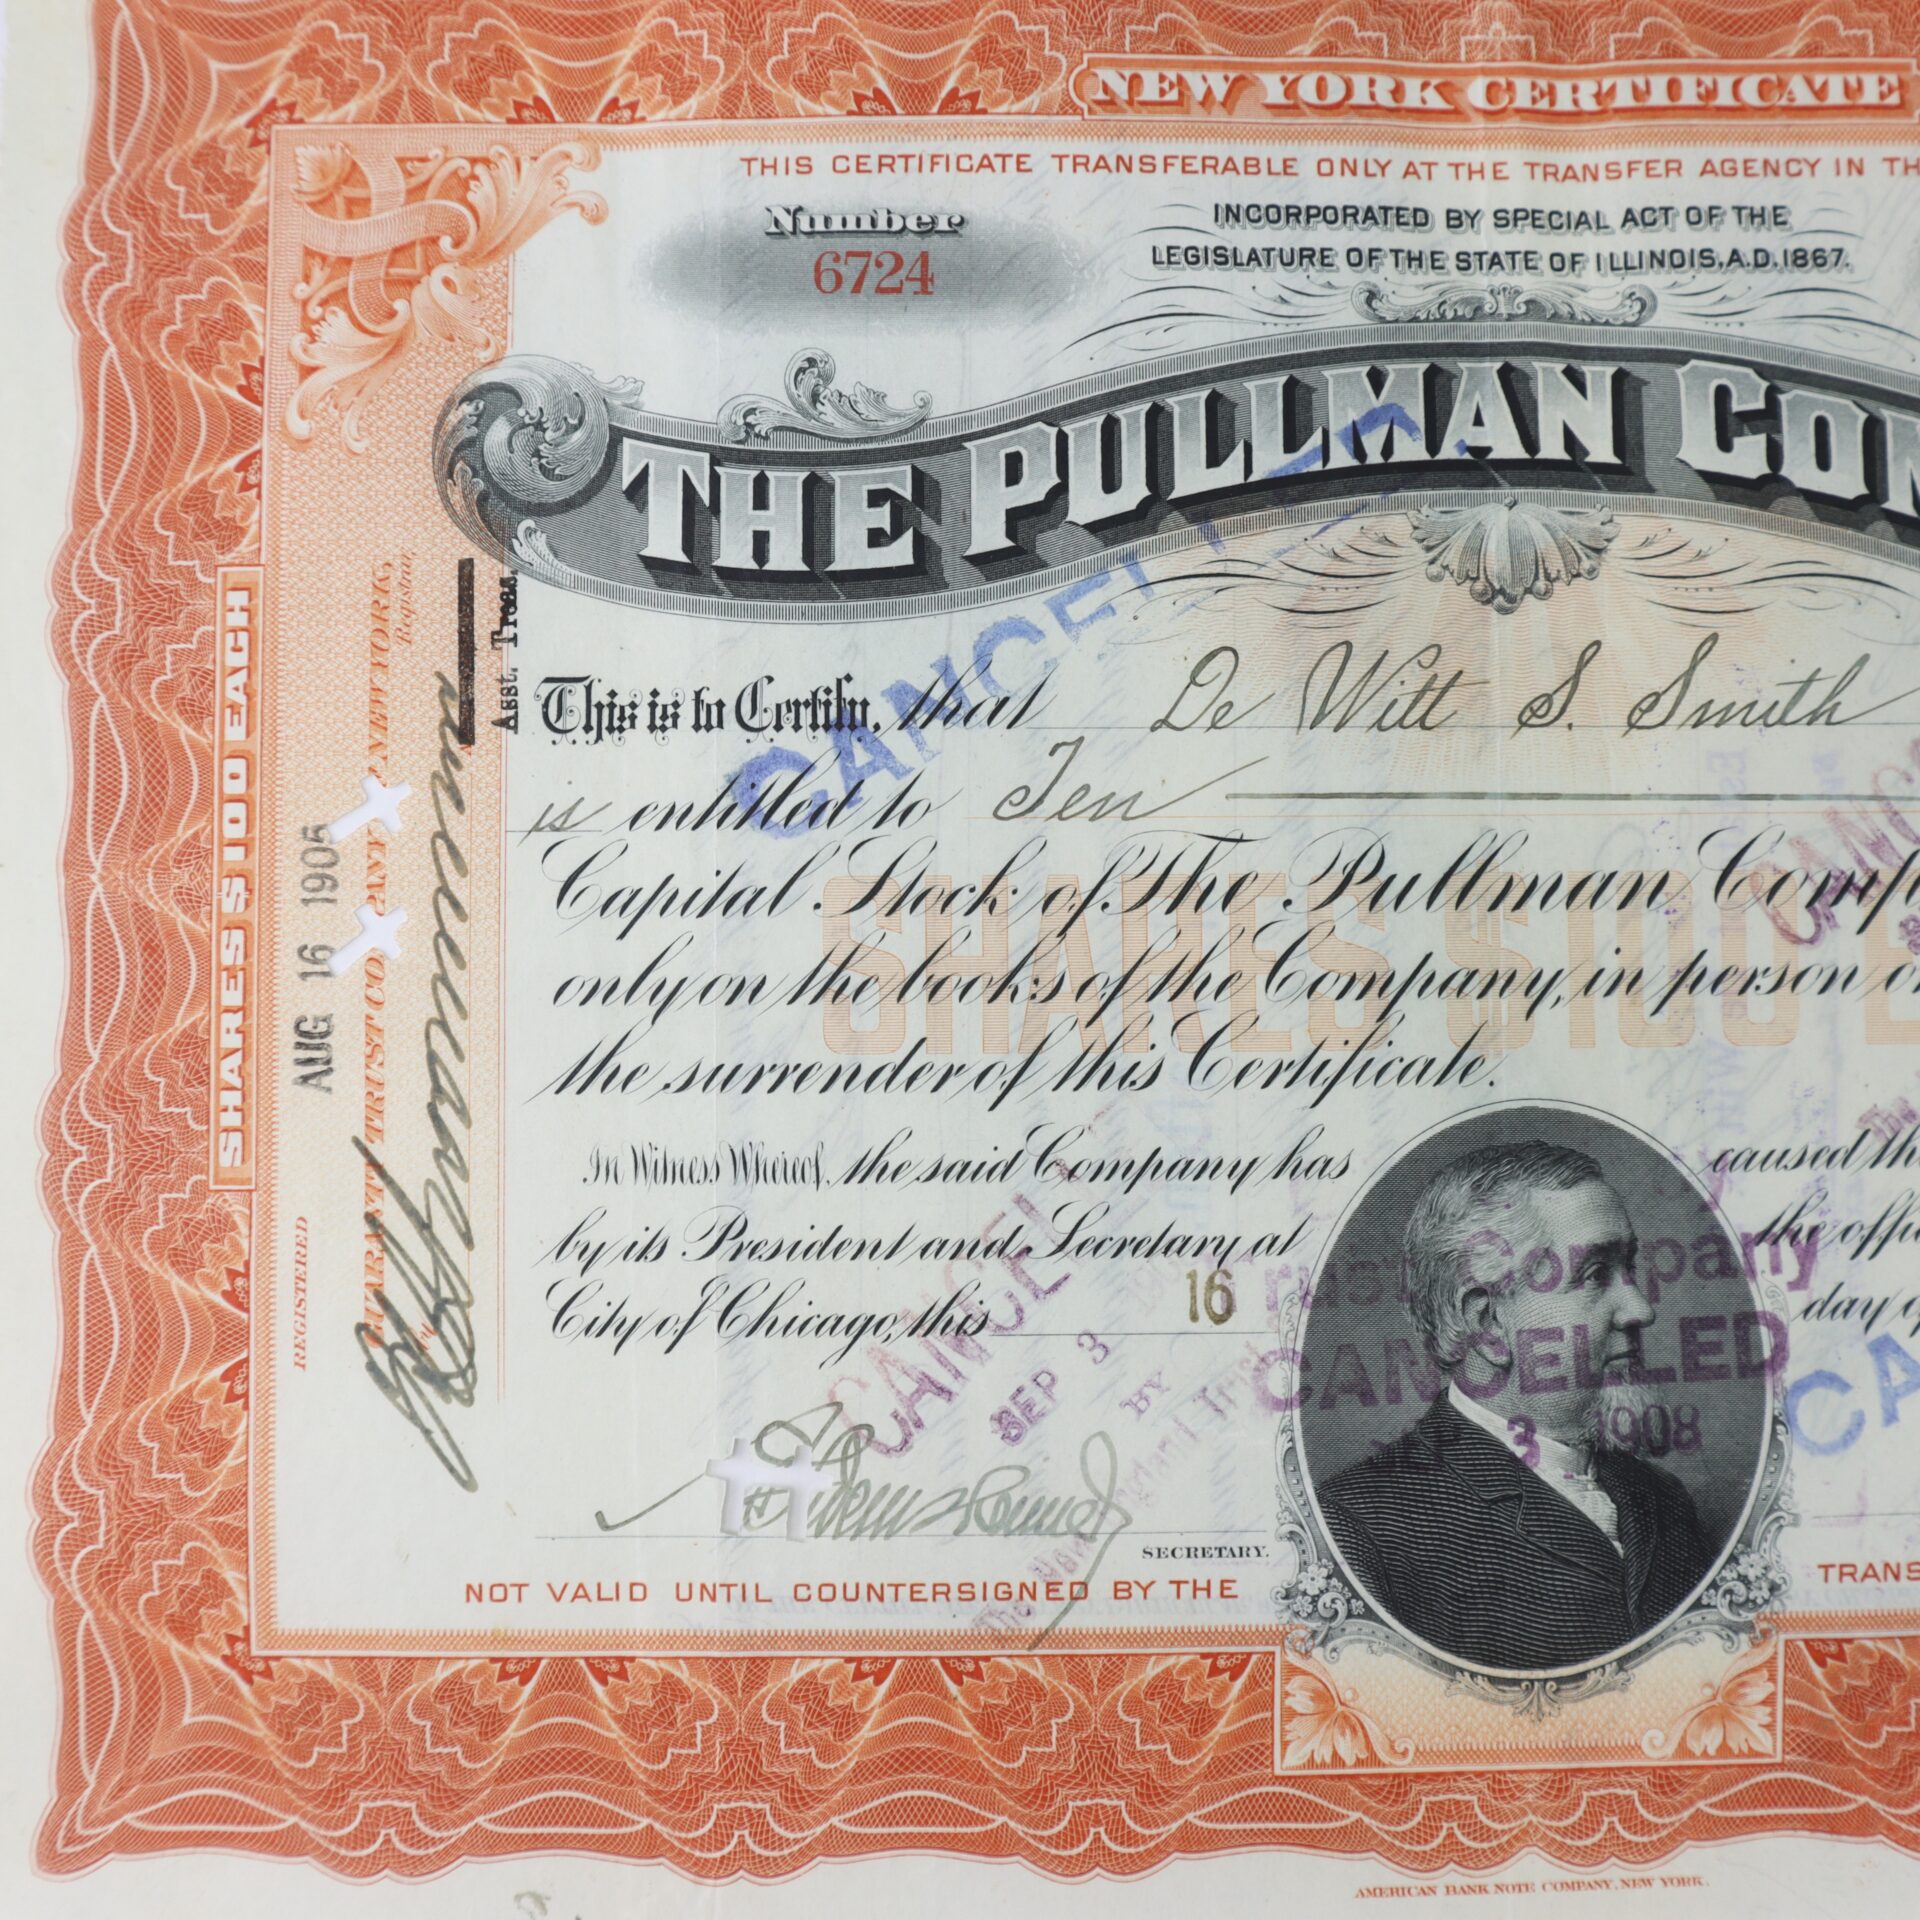 NEW YORK CERTIFICATE
THIS CERTIFICATE TRANSFERABLE ONLY AT THE TRANSFER AGENCY IN TH
Number
6724
INCORPORATED BY SPECIAL ACT OF THE
LEGISLATURE OF THE STATE OF ILLINOIS, A.D. 1867.
THE PULLMAN COM
CANCELLED
This is to Certify, that De Witt S. Smith
is entitled to Ten
Capital Stock of The Pullman Comp
only on the books of the Company, in person or
the surrender of this Certificate.
SHARES $100 E
In Witness Whereof, the said Company has caused th
by its President and Secretary at the offi
City of Chicago, this 16 day o
Trust Company
CANCELLED
3 1908
CANCEL
SEP 3
BY
CA
SECRETARY.
NOT VALID UNTIL COUNTERSIGNED BY THE TRANS
AMERICAN BANK NOTE COMPANY, NEW YORK.
SHARES $100 EACH
REGISTERED
AUG 16 1905
TRUST COMPANY NEW YORK,
by
Registrar
Asst. Treas.